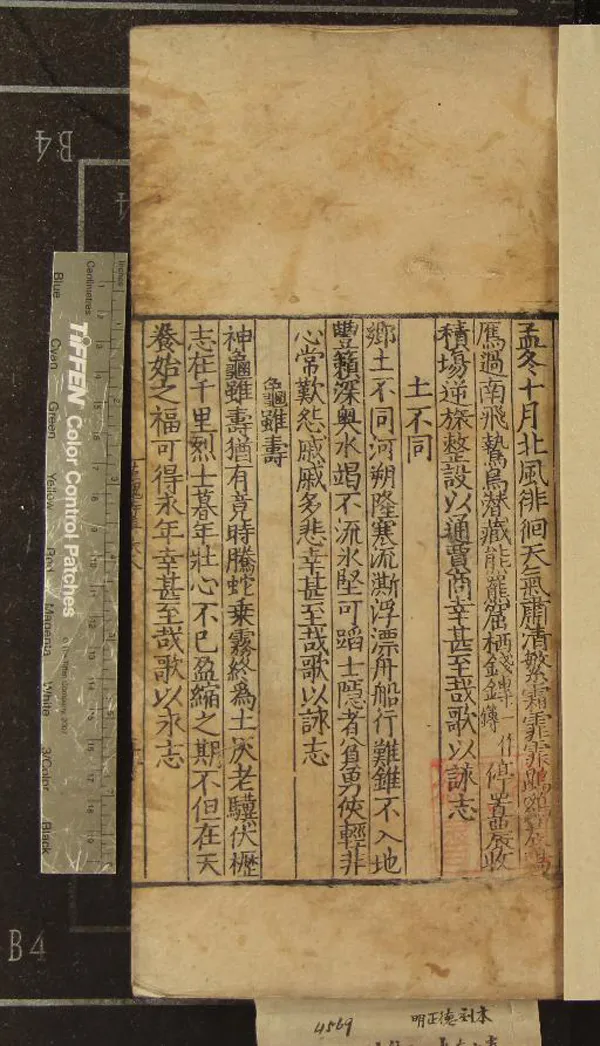 孟冬十月北風徘徊天氣肅清繁霜霏霏鵾鷄晨鳴
鴈過南飛鷙鳥潛藏熊羆窟栖錢鎛一作停置農收
積場逆旅整設以通賈商幸甚至哉歌以詠志
土不同
鄉土不同河朔隆寒流澌浮漂舟船行難錐不入地
豐籟深奧水竭不流氷堅可蹈士隱者貧勇俠輕非
心常歎怨戚戚多悲幸甚至哉歌以詠志
龜雖壽
神龜雖壽猶有竟時騰蛇乗霧終爲土灰老驥伏櫪
志在千里烈士暮年壯心不已盈縮之期不但在天
養始之福可得永年幸甚至哉歌以永志
B4
B4
TIFFEN Color Control Patches
Inches
Centimetres
Blue
Cyan
Green
Yellow
Red
Magenta
White
3/Color
Black
4569
明正德刻本